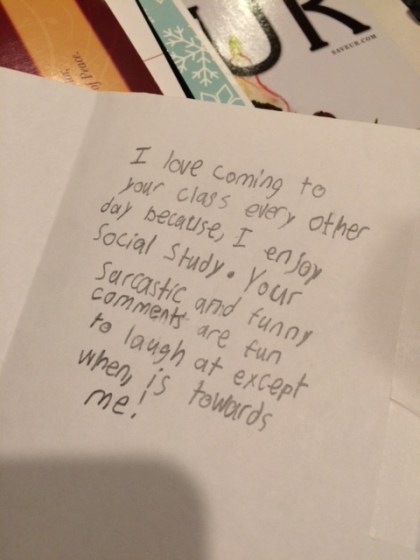 UR
SAVEUR.COM
of Peace.
I love coming to
your class every other
day because, I enjoy
Social Study. Your
Sarcastic and funny
comments are fun
to laugh at except
when, is towards
me!